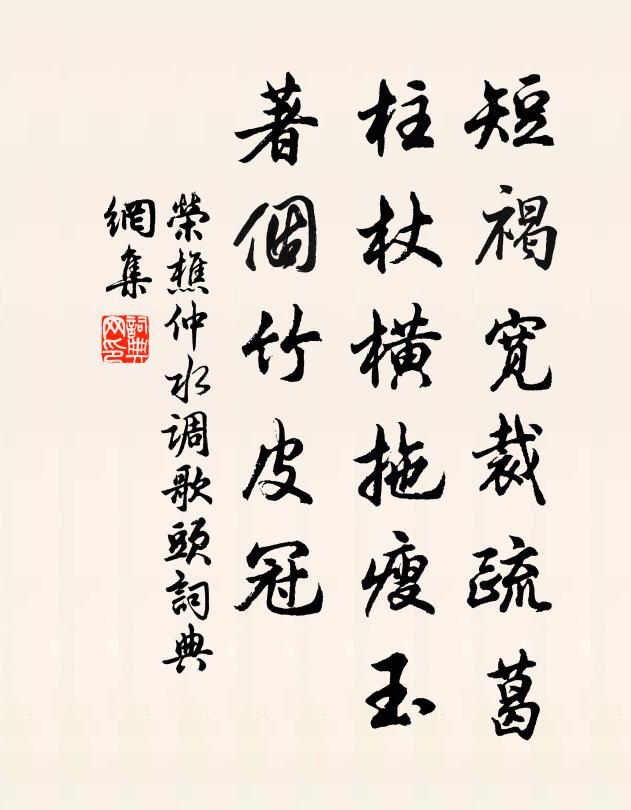 短褐寬裁疏葛
柱杖橫拖瘦玉
著個竹皮冠
榮樵仲水调歌頭詞典
網集
詞典
网印